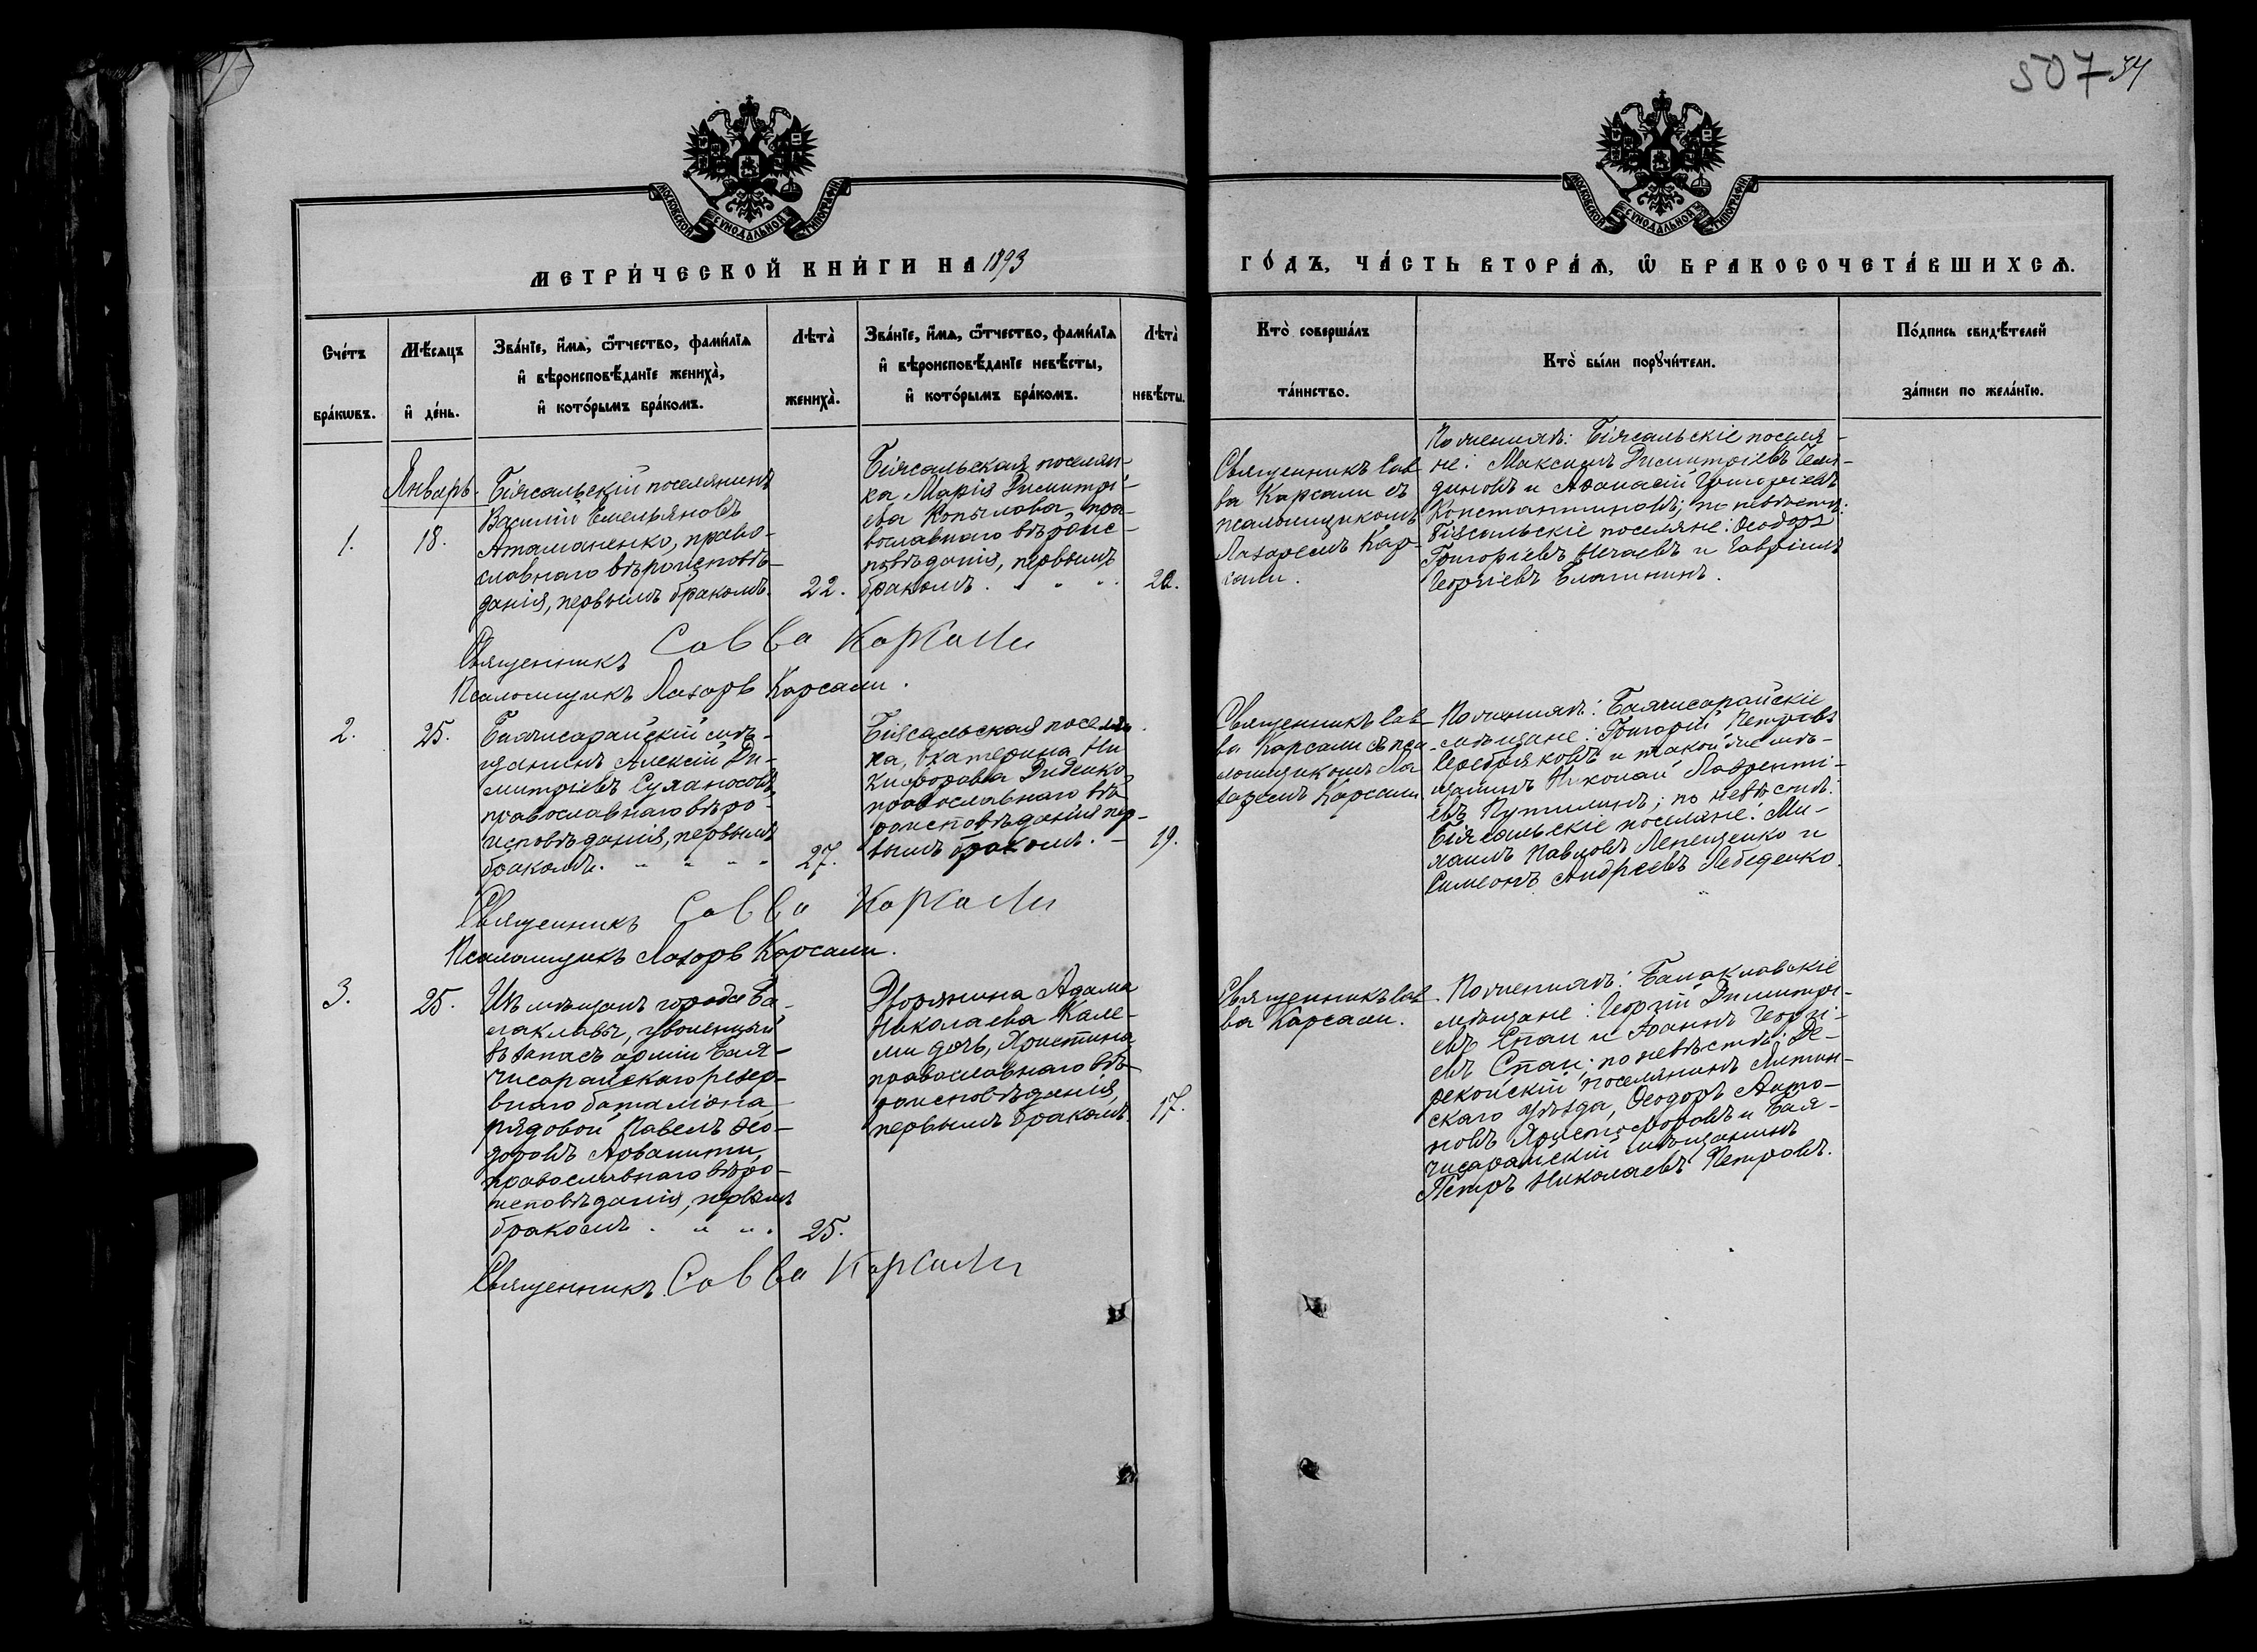 507 34
МОСКОВСКОЙ СѴНОДАЛЬНОЙ ТИПОГРАФІИ
МОСКОВСКОЙ СѴНОДАЛЬНОЙ ТИПОГРАФІИ
МЕТРИ́ЧЕСКОЙ КНИ́ГИ НА 1893
ГО́ДЪ, ЧА́СТЬ ВТОРА́Ѧ, Ѡ҆ БРАКОСОЧЕТА́ВШИХСѦ.
Сче́тъ
бра́кѡвъ.
Мѣ́сяцъ
и҆ де́нь.
Зва́нїе, и҆́мѧ, ѻ҆́тчество, фами́лїѧ
и҆ вѣроисповѣ́данїе жениха̀,
и҆ кото́рымъ бра́комъ.
Лѣта̀
жениха̀.
Зва́нїе, и҆́мѧ, ѻ҆́тчество, фами́лїѧ
и҆ вѣроисповѣ́данїе невѣ́сты,
и҆ кото́рымъ бра́комъ.
Лѣта̀
невѣ́сты.
Кто̀ соверша́лъ
та́инство.
Кто̀ бы́ли порꙋчи́тели.
По́дпись свидѣ́телей
за́писи по жела́нїю.
Январь.
1.
18.
Біясальскій поселянинъ
Василій Емельяновъ
Атаманенко, право-
славнаго вѣроисповѣ-
данія, первымъ бракомъ.
22.
Біясальская поселян-
ка Марія Димитрі-
ева Копылова, пра-
вославнаго вѣроис-
повѣданія, первымъ
бракомъ.
Священникъ Сав-
ва Карсали съ
псаломщикомъ
Лазаремъ Кар-
сали.
По женихѣ: Біясальскіе поселя-
не: Максимъ Димитріевъ
и Аѳанасій Григоріевъ
Константиновъ; по невѣстѣ:
Біясальскіе поселяне: Ѳеодоръ
Григоріевъ Нечаевъ и Гавріилъ
Георгіевъ
Священникъ Савва Карсали
Псаломщикъ Лазарь Карсали.
2.
25.
Бахчисарайскій мѣ-
щанинъ Алексій Ди-
митріевъ Сухановъ,
православнаго вѣро-
исповѣданія, первымъ
бракомъ.
27.
Біясальская поселян-
ка, Екатерина Ни-
кифорова Диденко,
православнаго вѣ-
роисповѣданія пер-
вымъ бракомъ.
19.
Священникъ Сав-
ва Карсали съ пса-
ломщикомъ Ла-
заремъ Карсали.
По женихѣ: Бахчисарайскіе
мѣщане: Григорій Петровъ
Серебряковъ и такой же мѣ-
щанинъ Николай Лаврентi-
евъ Путилинъ; по невѣстѣ:
Біясальскіе поселяне: Ми-
хаилъ Павловъ Лепещенко и
Симеонъ Андреевъ Лебеденко.
Священникъ Савва Карсали
Псаломщикъ Лазарь Карсали.
3.
25.
Изъ мѣщанъ города Ба-
лаклавы, уволенный
въ запасъ арміи Бах-
чисарайскаго резер-
внаго баталіона
рядовой Павелъ Ѳео-
доровъ Арванити,
православнаго вѣро-
исповѣданія, первымъ
бракомъ.
25.
Дворянина Адама
Николаева Кале-
ми дочь, Христина
православнаго вѣ-
роисповѣданія,
первымъ бракомъ.
17.
Священникъ Сав-
ва Карсали.
По женихѣ: Балаклавскіе
мѣщане: Георгій Димитрі-
евъ Спаи и Іоаннъ Георгі-
евъ Спаи; по невѣстѣ: Де-
рекойскій поселянинъ Ялтин-
скаго уѣзда, Ѳеодоръ Анто-
новъ Христофоровъ и Бах-
чисарайскій мѣщанинъ
Петръ Николаевъ Петровъ.
Священникъ Савва Карсали